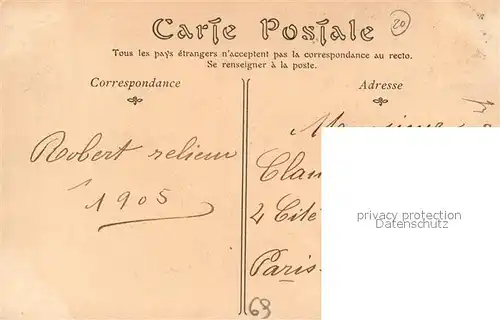 Carte Postale
20
Tous les pays étrangers n'acceptent pas la correspondance au recto.
Se renseigner à la poste.
Correspondance
Adresse
Robert relieur
1905
Clau
2 Cité
Paris
privacy protection
Verwendung
63